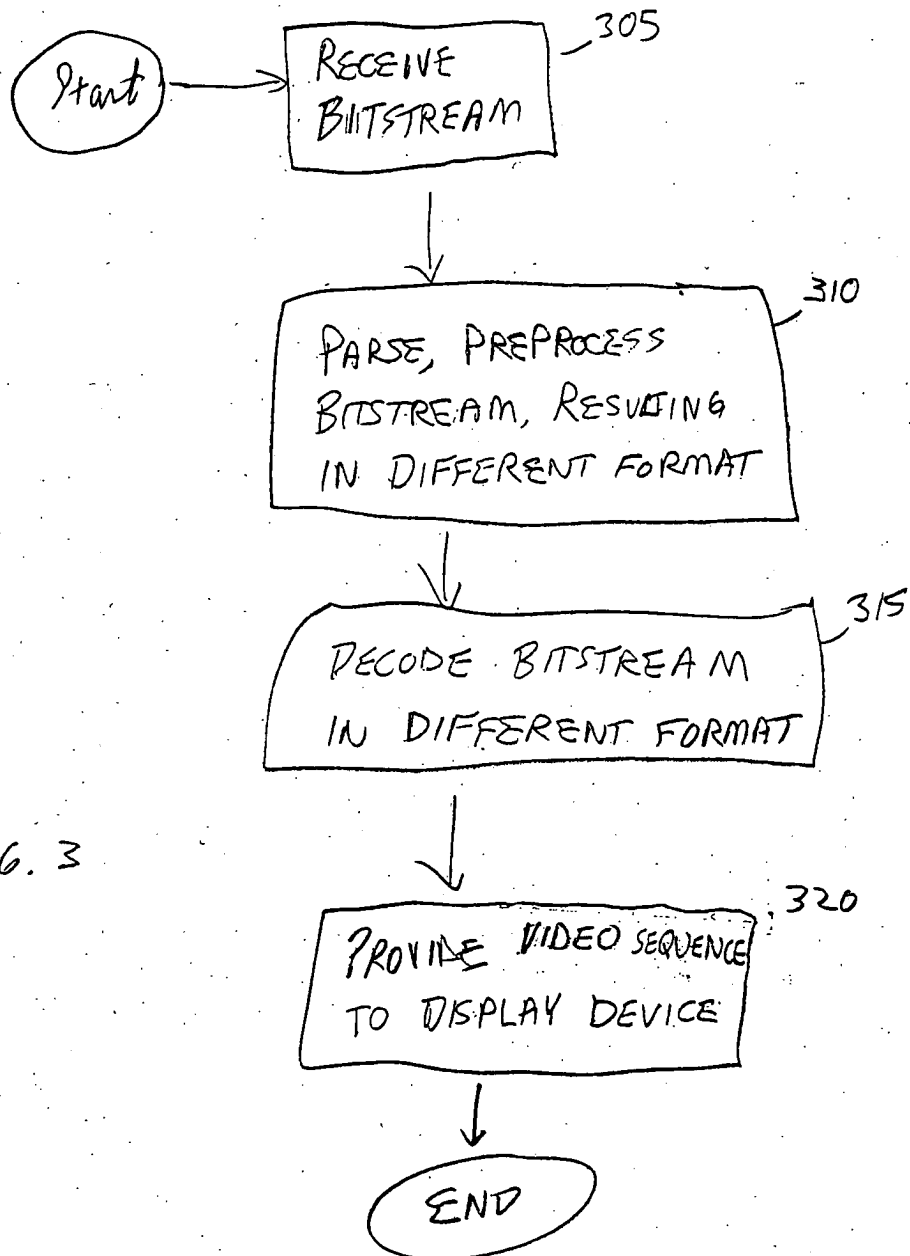 Start
RECEIVE
BITSTREAM
305
PARSE, PREPROCESS
BITSTREAM, RESULTING
IN DIFFERENT FORMAT
310
DECODE BITSTREAM
IN DIFFERENT FORMAT
315
6. 3
PROVIDE VIDEO SEQUENCE
TO DISPLAY DEVICE
320
END